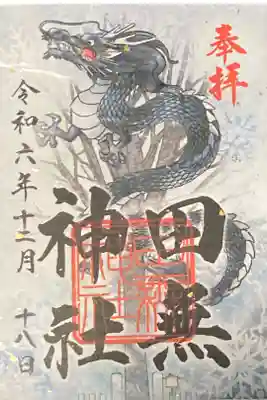 奉拝
田無
神社
令和六年十二月
十八日